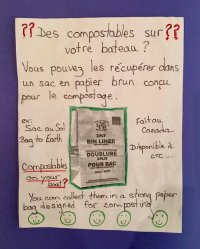 ?? Des compostables sur ??
votre bateau ?
Vous pouvez les récupérer dans
un sac en papier brun conçu
pour le compostage.
ex:
Sac au Sol
Bag to Earth
Fait au
Canada
Disponible à
BIN LINER
DOUBLURE
POUR BAC
Compostables
on your
boat?
You can collect them in a strong paper
bag designed for composting